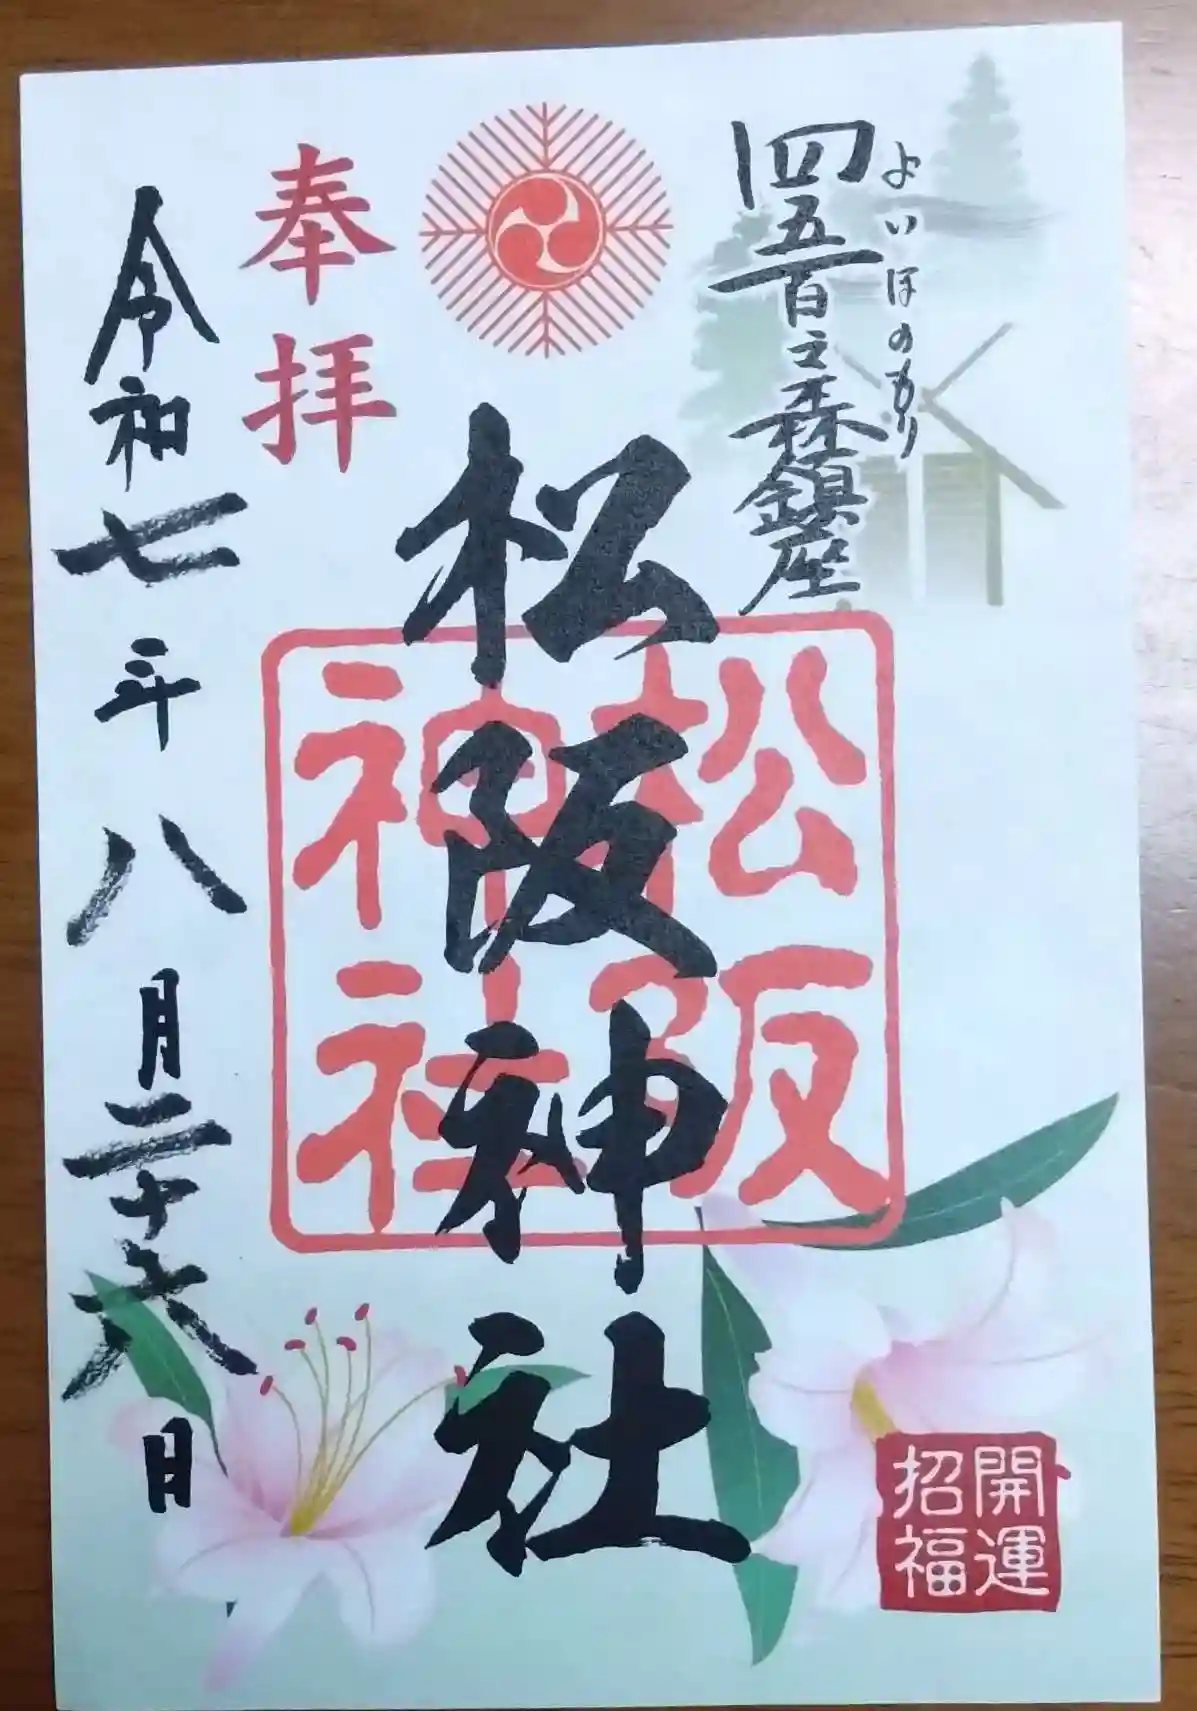 四五百之森鎮座
よいほのもり
松阪神社
松阪
神社
奉拝
令和七年八月二十六日
開運
招福